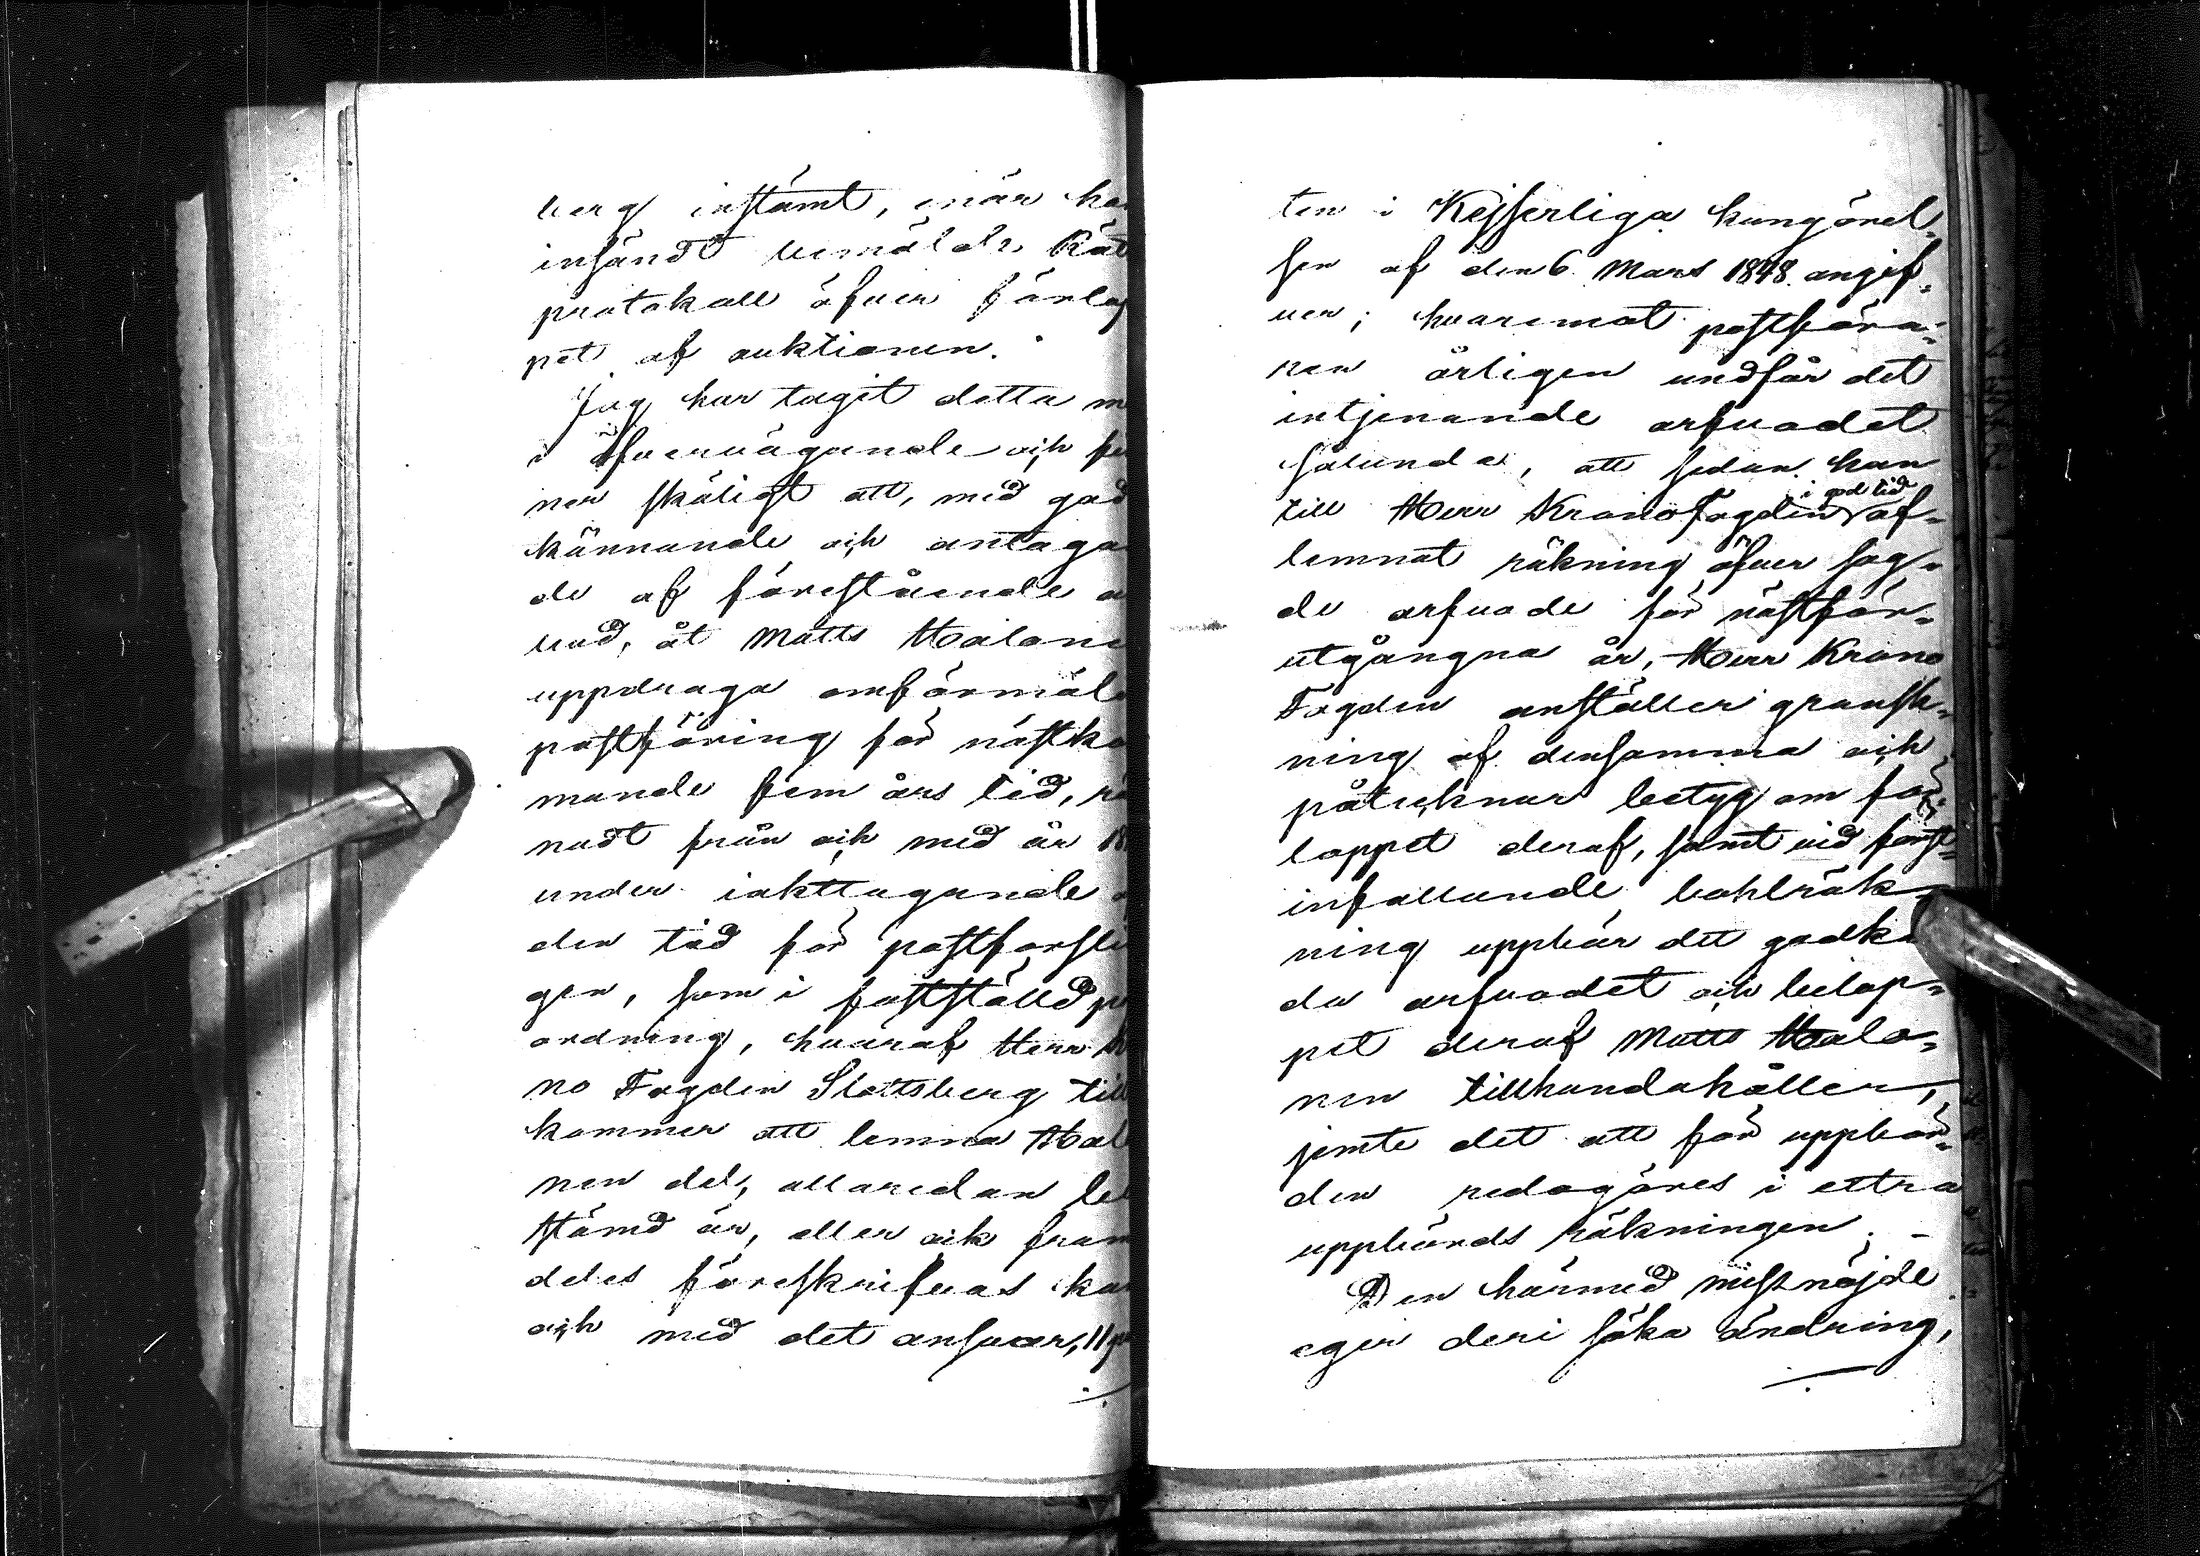 berg instämt, när ha
insändt bemälde Rät
protokoll öfver förlop
pet af auktionen.
Jag har tagit detta m
i öfvervägande och fin
ner skäligt att, med god
kännande och antagan
de af förestående a
bud, åt Matts Halone
uppdraga omförmäl
postföring för nästko
mande fem års tid, rä
nadt från och med år 18
under iakttagande a
den tid för postforslin
gen, som i fastställd p
ordning, hvaraf Herr Kr
no Fogden Slottsberg till
kommer att lemna Hal
nen del, allaredan be
stämd är, eller ock fram
deles föreskrifvas kan
och med det ansvar, ll
ten i Kejserliga kungörel-
sen af den 6 Mars 1848 angif-
ver; hvaremot postföra-
ren årligen undfår det
intjenande arfvodet
sålunda, att sedan han
till Herr KronoFogden i god tid af-
lemnat räkning öfver sag-
de arfvode för nästför-
utgångna år, Herr Krono
Fogden anställer gransk-
ning af densamma och
påtecknar betyg om för-
loppet deraf, samt vid först
infallande bohlräk-
ning uppbär det godkä
da arfvodet och belop-
pet deraf Matts Halo-
nen tillhandahåller,
jemte det att för uppbör-
den redogöres i extra
uppbörds räkningen. -
Den härmed missnöjde
eger deri söka ändring,